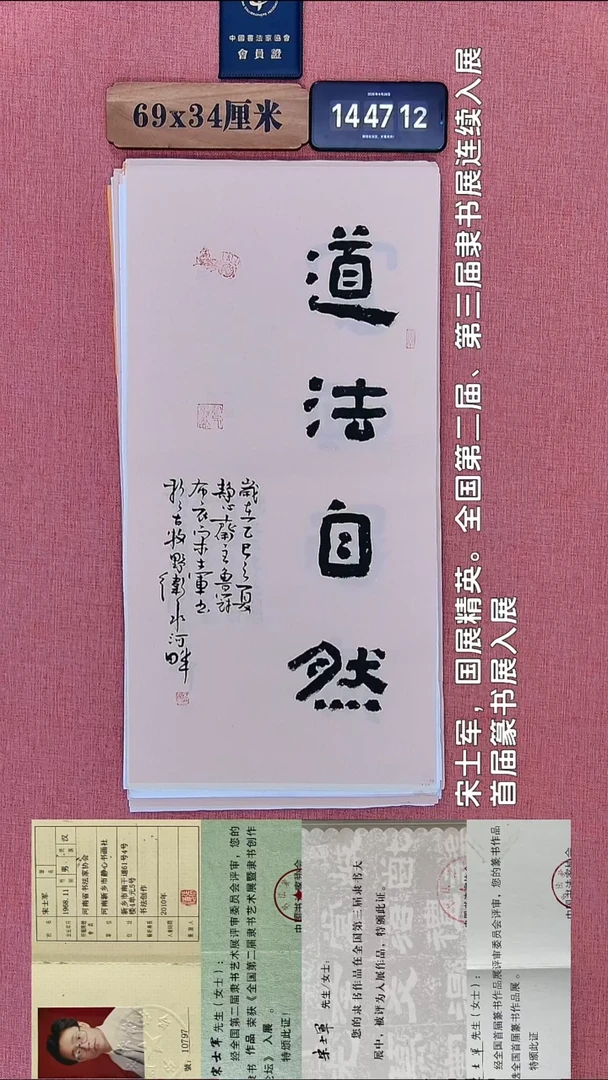 中國書法家協會
會員證
69x34厘米
14 47 12
宋士军，国展精英。全国第二届、第三届隶书展连续入展
首届篆书展入展
道法自然
歲在乙巳之夏
靜心齋主魯許
布衣宋士軍書
於古牧野衛水河畔
宋士军
男
汉
1968.11
河南省书法家协会
河南新乡市静心书画社
新乡市南干道61号4号
楼4单元5号
书法创作
2010年
號：10797
宋士军 先生（女士）：
经全国第二届隶书艺术展评审委员会评审，您的
隶书 作品 荣获《全国第二届隶书艺术展暨隶书创作
论坛》入展 。
特颁此证！
宋士军 先生/女士：
您的隶书作品在全国第三届隶书大
展中，被评为入展作品，特颁此证。
先生（女士）：
经全国首届篆书作品展评审委员会评审，您的篆书作品
选全国首届篆书作品展。
特颁此证